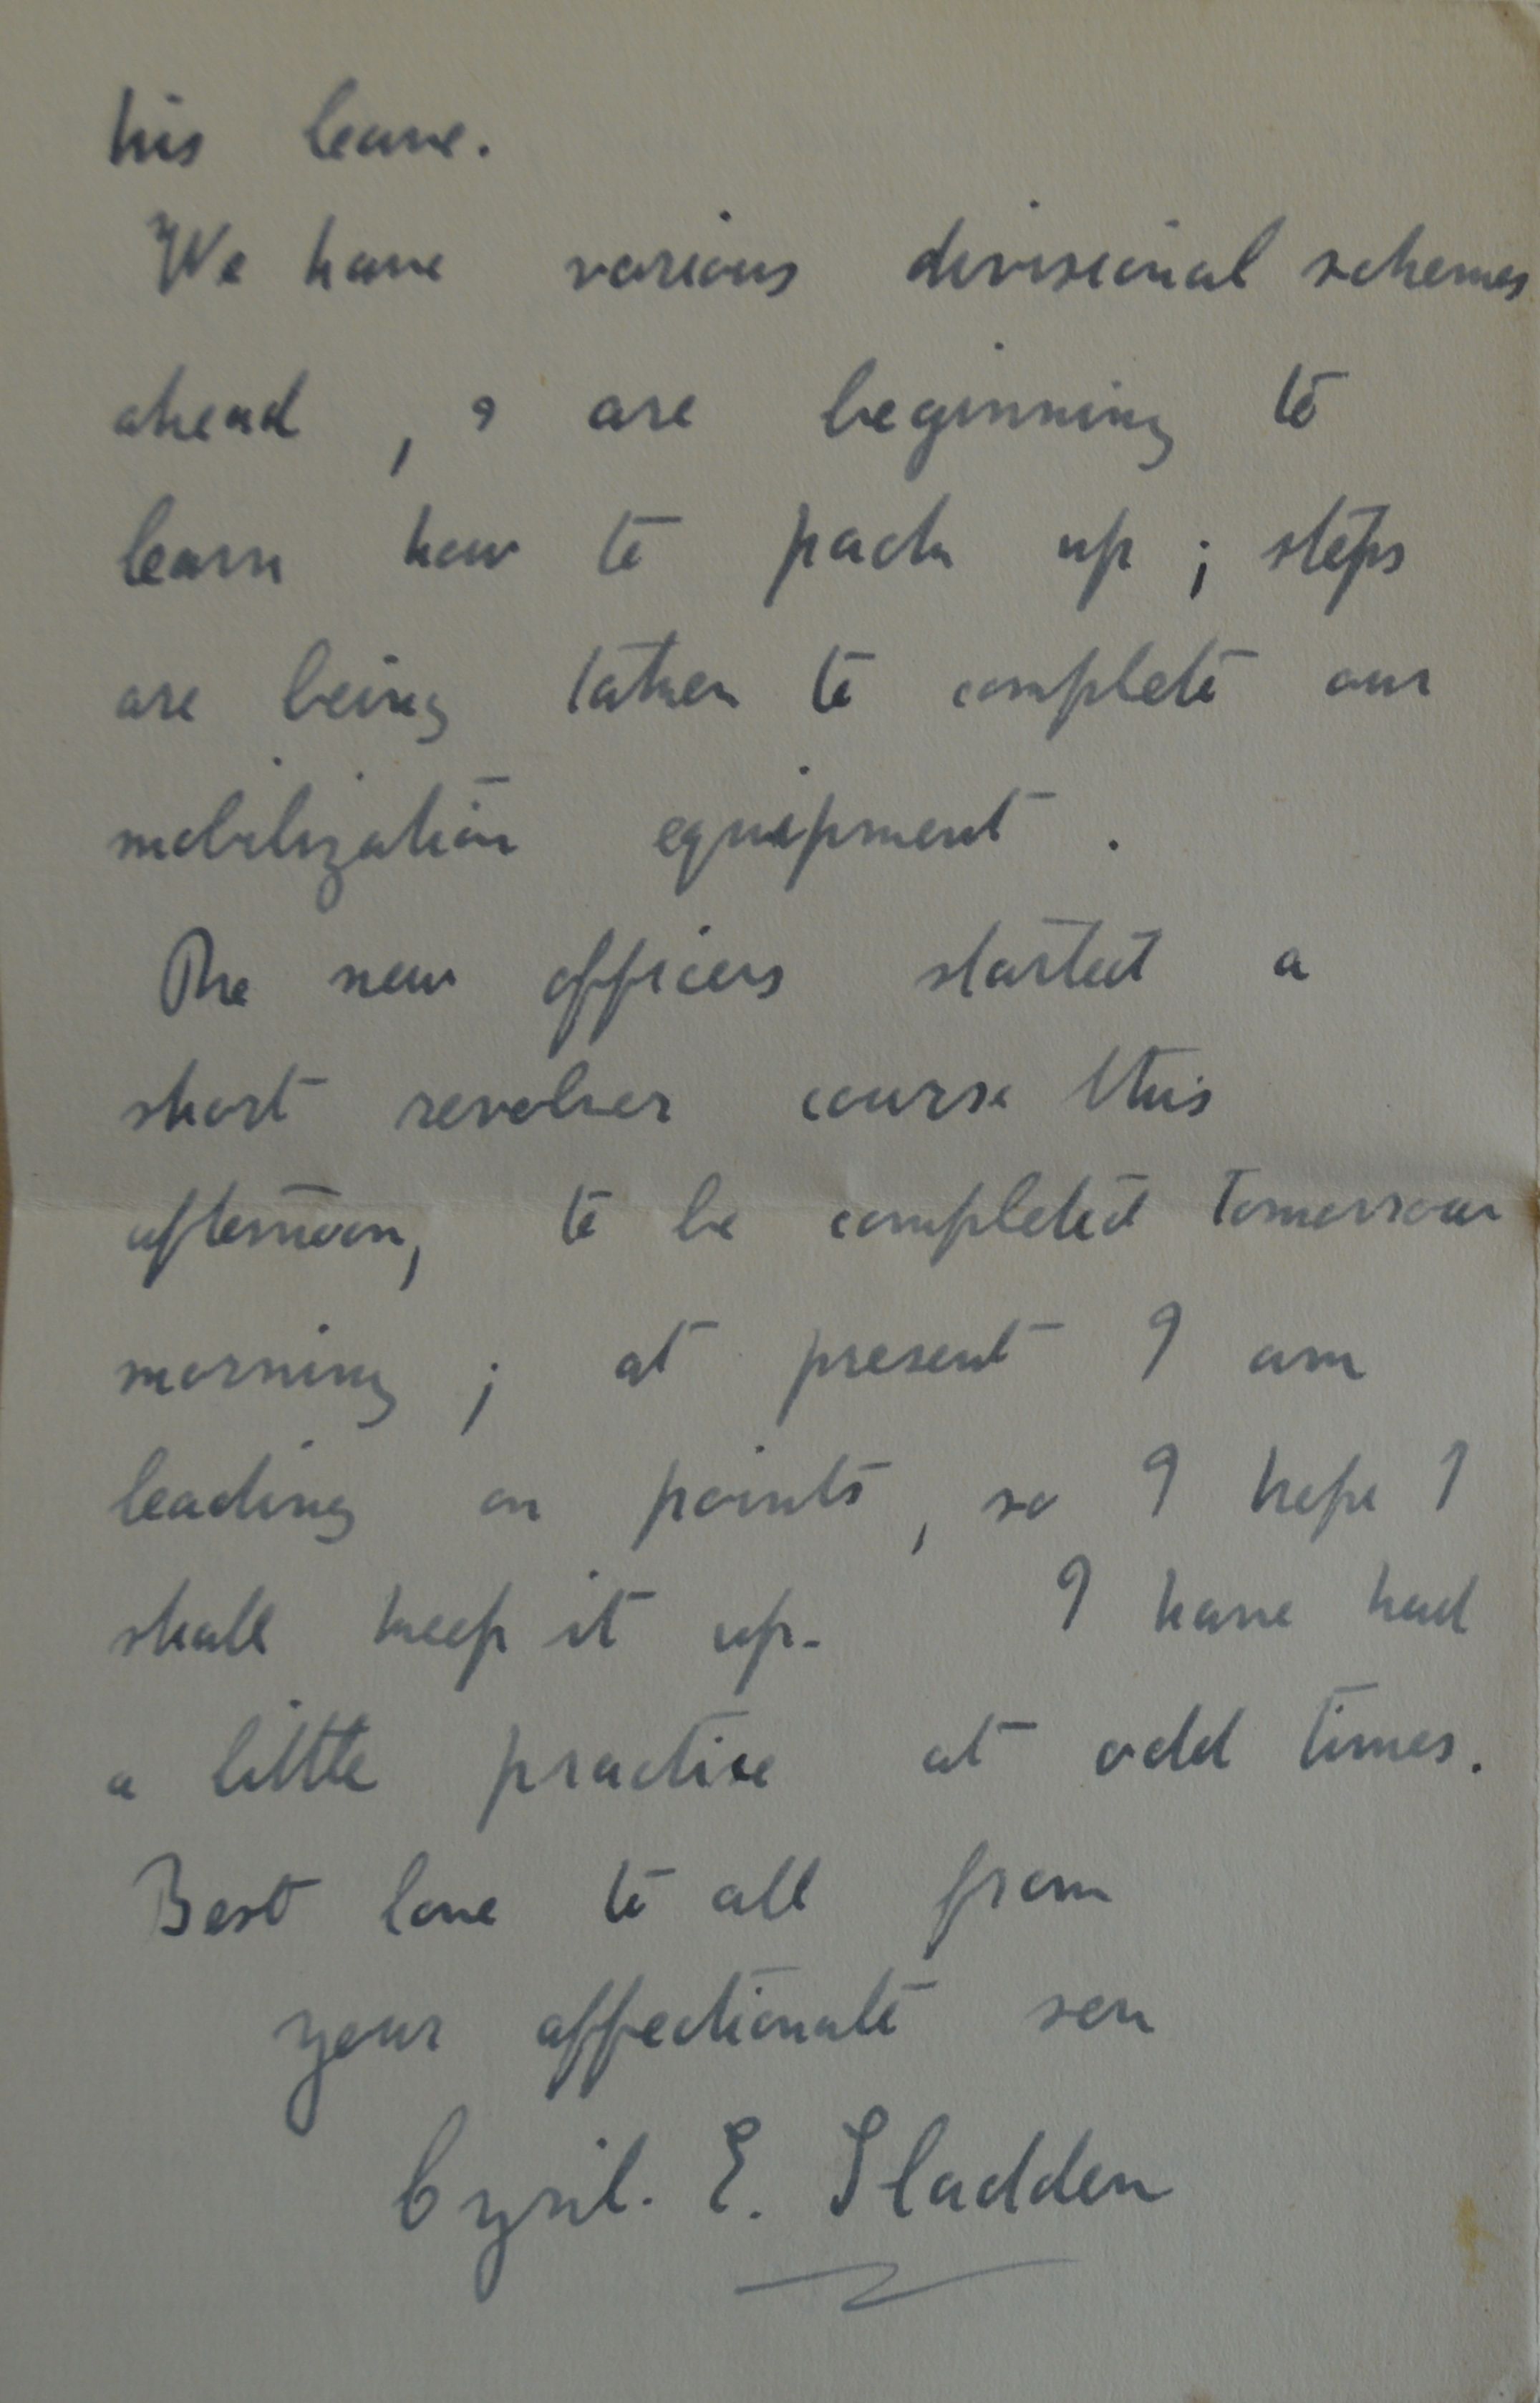 his leave.
We have various divisional schemes
ahead, & are beginning to
learn how to pack up; steps
are being taken to complete our
mobilization equipment.
The new officers started a
short revolver course this
afternoon, to be completed tomorrow
morning; at present I am
leading on points, so I hope I
shall keep it up. I have had
a little practice at odd times.
Best love to all from
your affectionate son
Cyril. E. Sladden